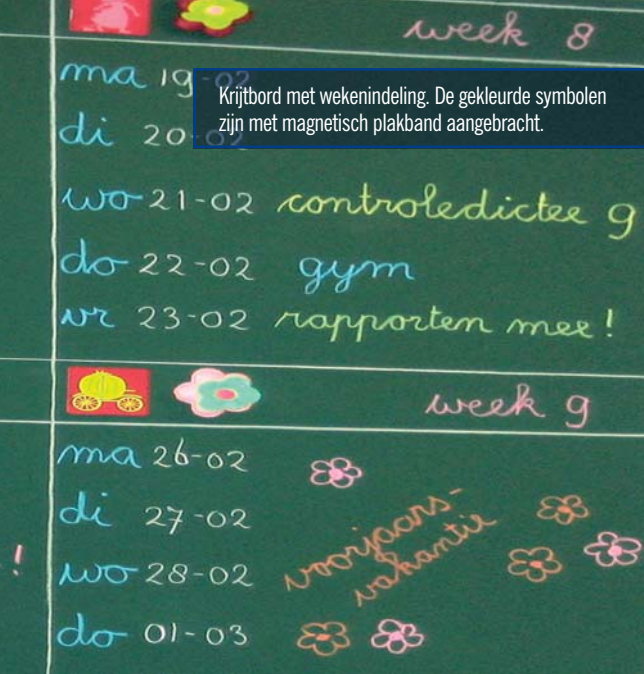 week 8
ma 19-02
Krijtbord met wekenindeling. De gekleurde symbolen
zijn met magnetisch plakband aangebracht.
di 20-02
wo 21-02 controledictee 9
do 22-02 gym
vr 23-02 rapporten mee!
week 9
ma 26-02
di 27-02
voorjaars-
vakantie
! wo 28-02
do 01-03